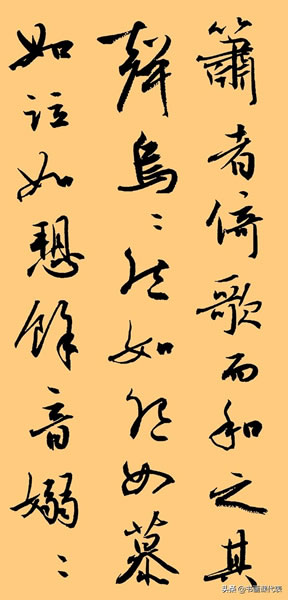 簫者倚歌而和之其
聲烏〻然如怨如慕
如泣如愬餘音嫋〻
头条 @书画课代表